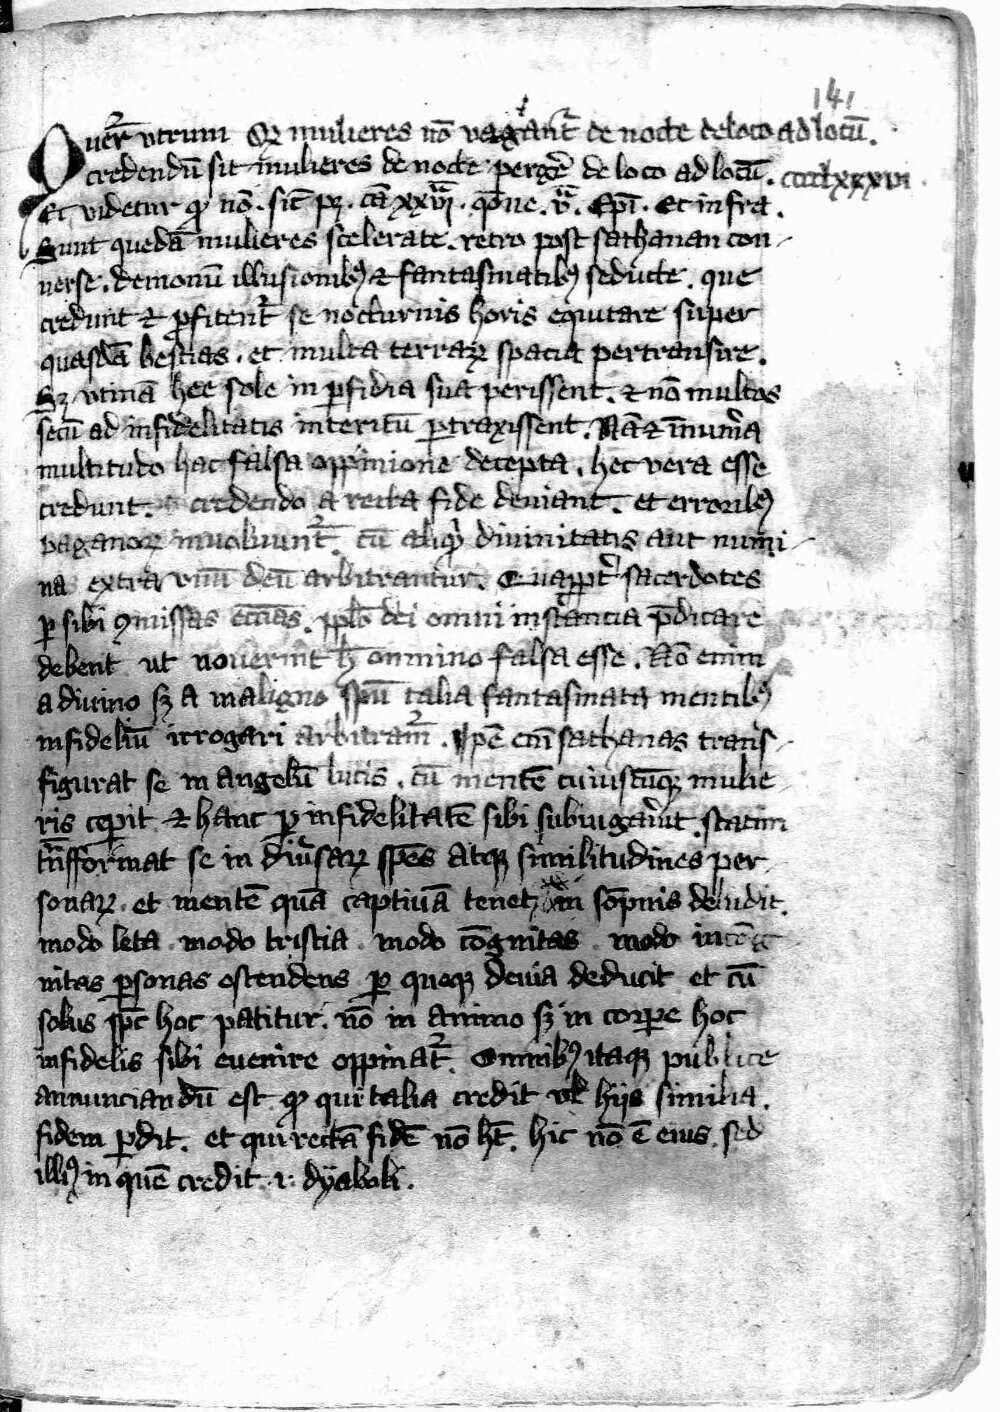 141
Querit᷑ vtrum Qꝫ mulieres nō vagant᷑ de nocte de loco ad locū.
credendū sit mulieres de nocte pergē de loco ad locū. cccclxxxvi
Et videtur ꝙ nō. sic̄ pꝫ. cā xxvi. q̄one. v. Epī. Et infra.
Sunt quedā mulieres scelerate. retro post sathanan con
uerse. demonū illusionibꝰ ⁊ fantasmatibꝰ seducte. que
credunt ⁊ ꝓfitent᷑ se nocturnis horis equitare super
quasdā bestias. et multa terraꝝ spacia pertransire.
Sꝫ vtinā hee sole in ꝑfidia sua perissent. ⁊ nō multos
secū ad infidelitatis interitū ꝑtraxissent. Nā ⁊ īnum̄a
multitudo hac falsa oppinione decepta. hec vera esse
credunt. credendo a recta fide deuiant. et erroribꝰ
paganoꝝ inuoluunt᷑. cū aliqͥd diuinitatis aut numi
na extra vnū deū arbitrantur. Quaꝓpt̄ sacerdotes
ꝑ sibi ꝯmissas ecc̄as. pplo dei omni instancia p̄dicare
debent ut nouerint h̄ omnino falsa esse. Nō enim
a diuino sꝫ a maligno spū talia fantasmata mentibꝰ
infideliū irrogari arbitram᷑. Ipē em̄ sathanas trans
figurat se in angelū lucis. cū mentē cuiuscūqꝫ mulie
ris ceperit ⁊ hanc ꝑ infidelitatē sibi subiugau̓it statim
tn̄sformat se in diu̓saꝝ spēs atqꝫ similitudines per
sonaꝝ. et mentē quā captiuā tenet in sōpnis deludit.
modo leta modo tristia modo cōgnitas modo incōg
nitas ꝑsonas ostendens ꝑ queqꝫ deuia deducit et cū
solus spc̄ hoc patitur. nō in animo sꝫ in corpe hoc
infidelis sibi euenire oppinat᷑. Omnibꝰ itaqꝫ publice
annunciandū est ꝙ qui talia credit vl̄ hijs similia.
fidem ꝑdit. et qui rectā fidē nō hꝫ. hic nō ē eius sed
illiꝰ in quē credit .i. dyaboli.